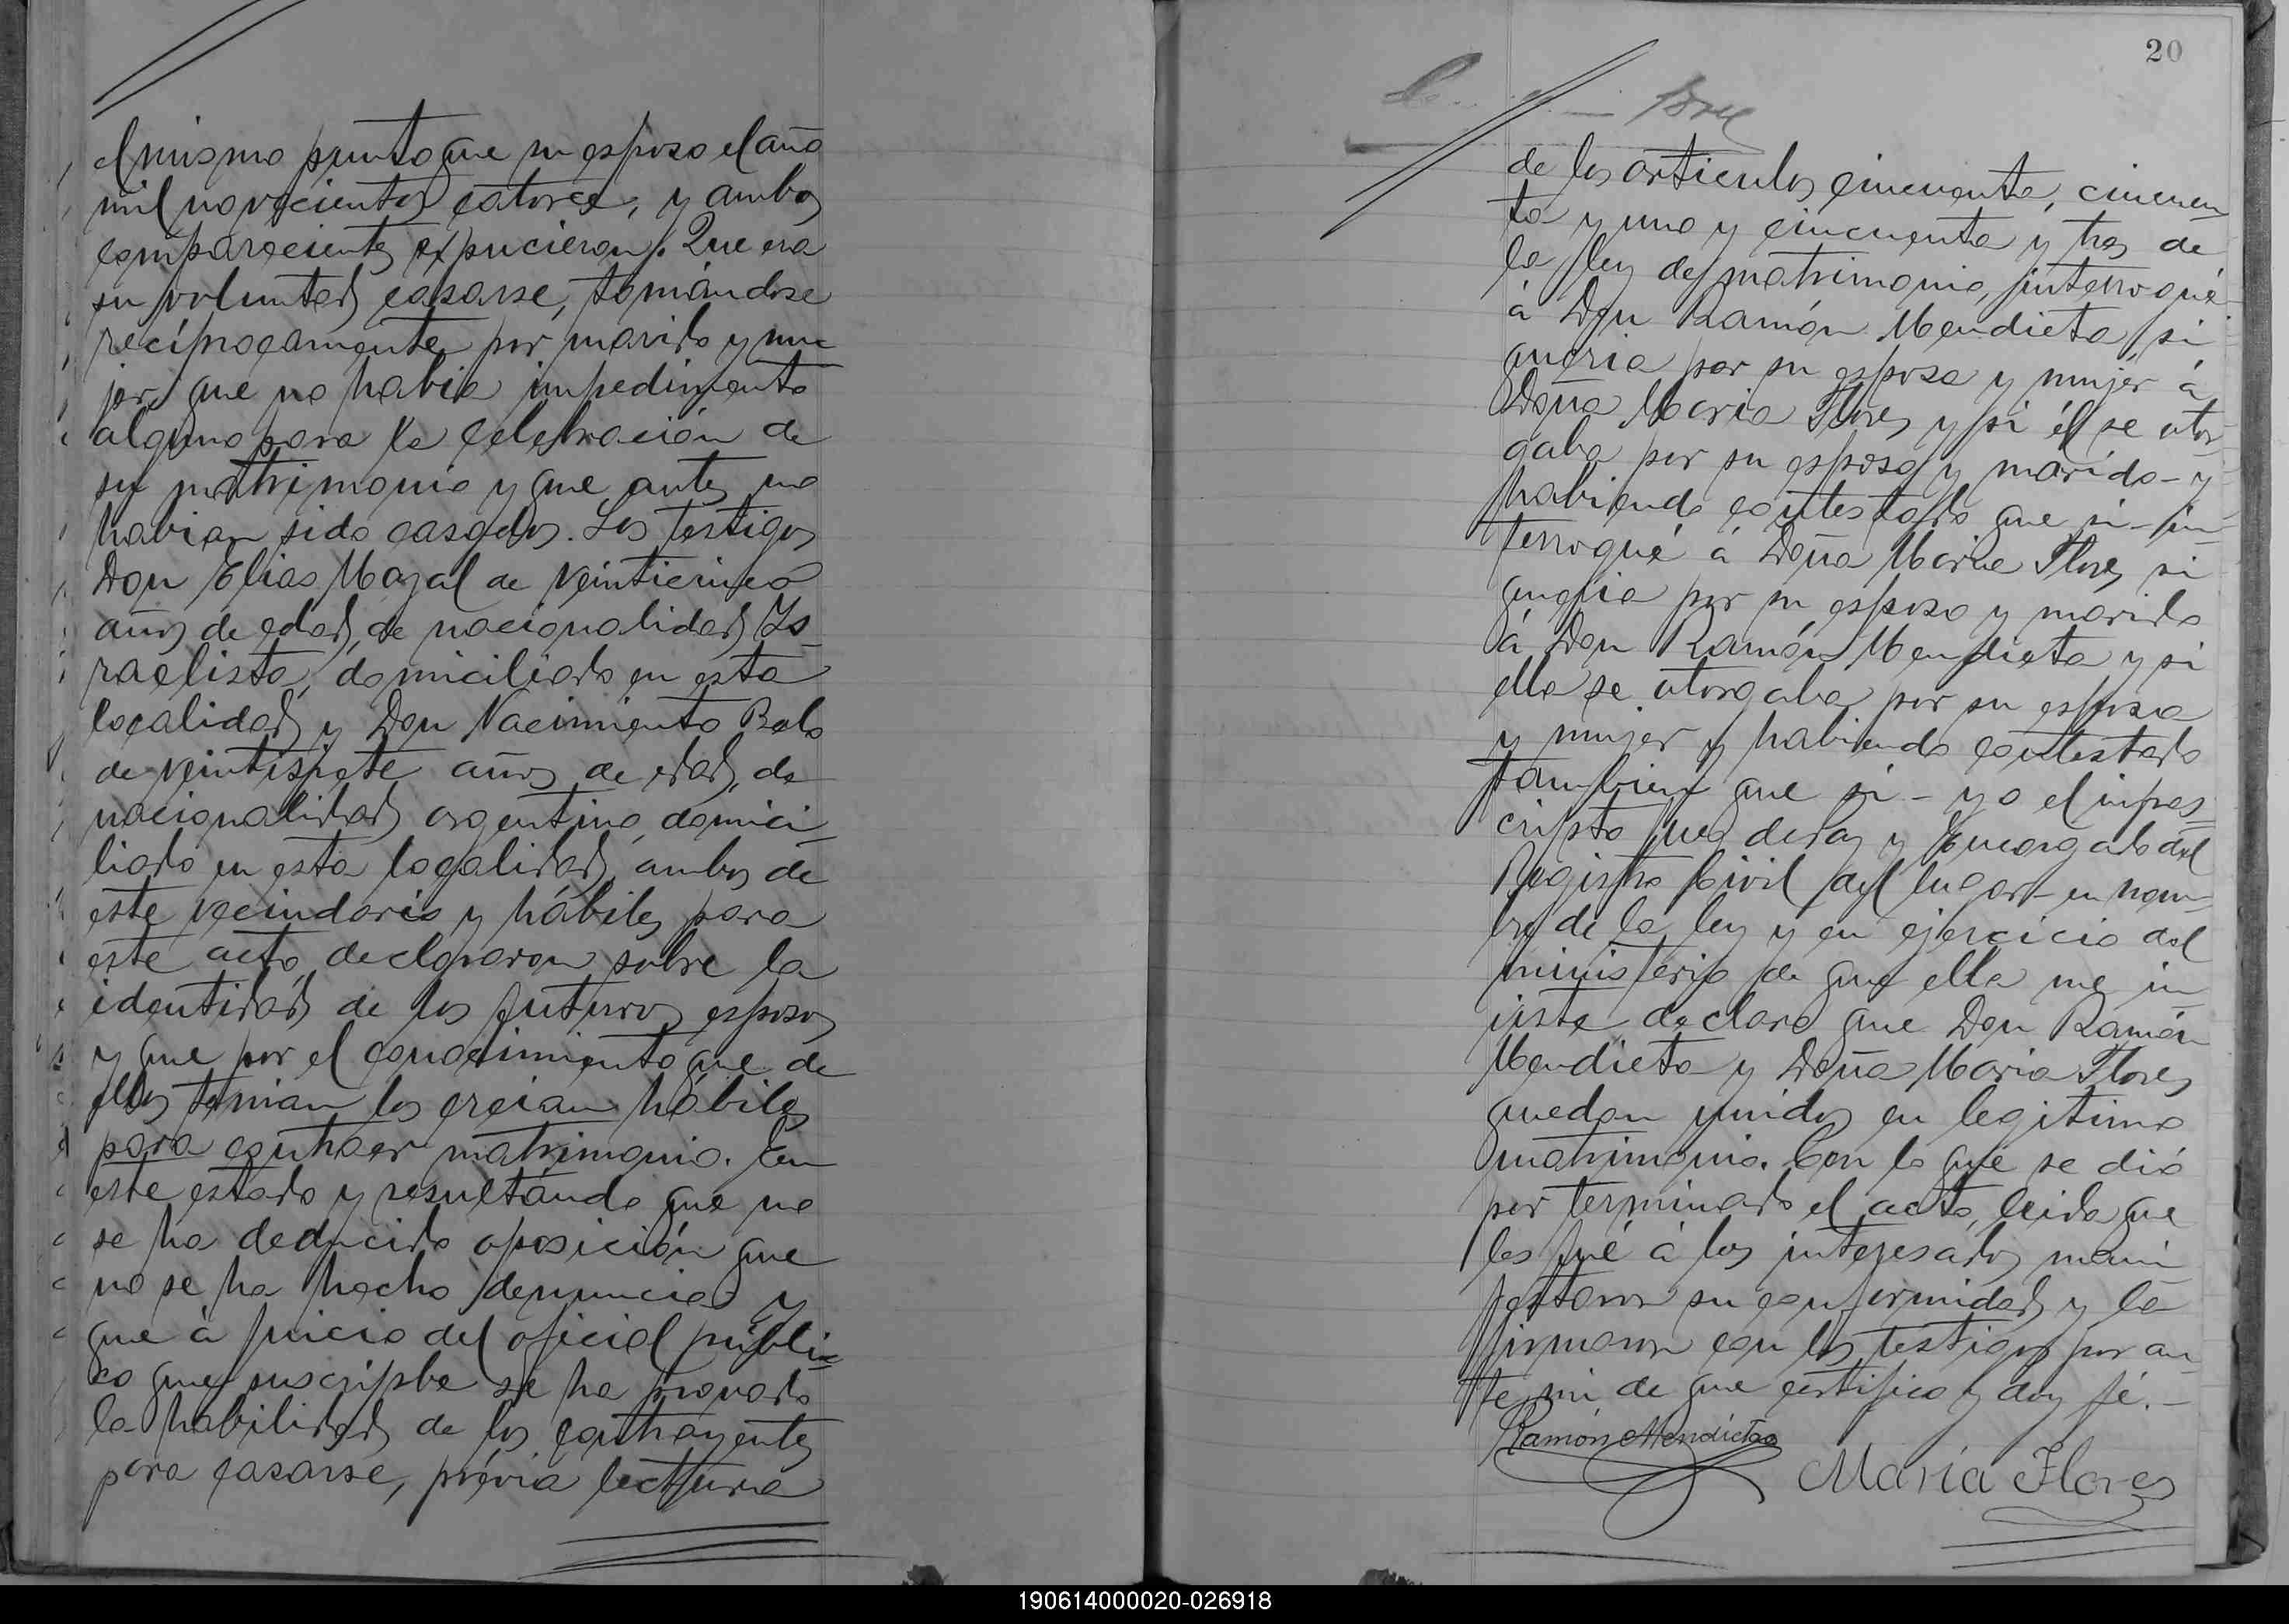 el mismo punto que su esposo el año
mil novecientos catorce, y ambos
comparecientes expucieron: Que era
su voluntad casarse, tomándose
recíprocamente por marido y mu-
jer; que no habia impedimento
alguno para la celebración de
su matrimonio y que antes no
habian sido casados. Los testigos
Don Elias Magal de veinticinco
años de edad, de nacionalidad Is-
raelista, domiciliado en esta
localidad y Don Nacimiento Bals
de veintisiete años de edad, de
nacionalidad argentino, domici-
liado en esta localidad, ambos de
este vecindario y hábiles para
este acto, declararon sobre la
identidad de los futuros esposos
y que por el conocimiento que de
ellos tenian los creian hábiles
para contraer matrimonio. En
este estado y resultando que no
se ha deducido oposición que
no se ha hecho denuncia y
que á juicio del oficial públi-
co que suscripbe se ha provado
la habilidad de los contrayentes
para casarse, prévia lectura
20
de los articulos cincuenta, cincuen
ta y uno y cincuenta y tres de
la ley de matrimonio, interrogué
á Don Ramón Mendieta si
queria por su esposa y mujer á
Doña Maria Flores y si él se otor
gaba por su esposo y marido - y
habiendo contestado que si - in-
terrogué á Doña Maria Flores si
queria por su esposo y marido
á Don Ramón Mendieta y si
ella se otorgaba por su esposa
y mujer y habiendo contestado
tambien que si - yo el infras-
cripto Juez de Paz y Encargado del
Registro Civil del lugar - en nom-
bre de la ley y en ejercicio del
ministerio de que ella me in-
viste declaro que Don Ramón
Mendieta y Doña Maria Flores
quedan unidos en legitimo
matrimonio. Con lo que se dió
por terminado el acto, leida que
les fué á los interesados mani
festaron su conformidad y la
firmaron con los testigos por an
te mi, de que certifico y doy fé. -
Ramón Mendieta
María Flores
190614000020-026918